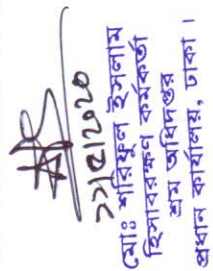 ২১/৫/২০২০
মোঃ শরিফুল ইসলাম
হিসাবরক্ষণ কর্মকর্তা
শ্রম অধিদপ্তর
প্রধান কার্যালয়, ঢাকা।